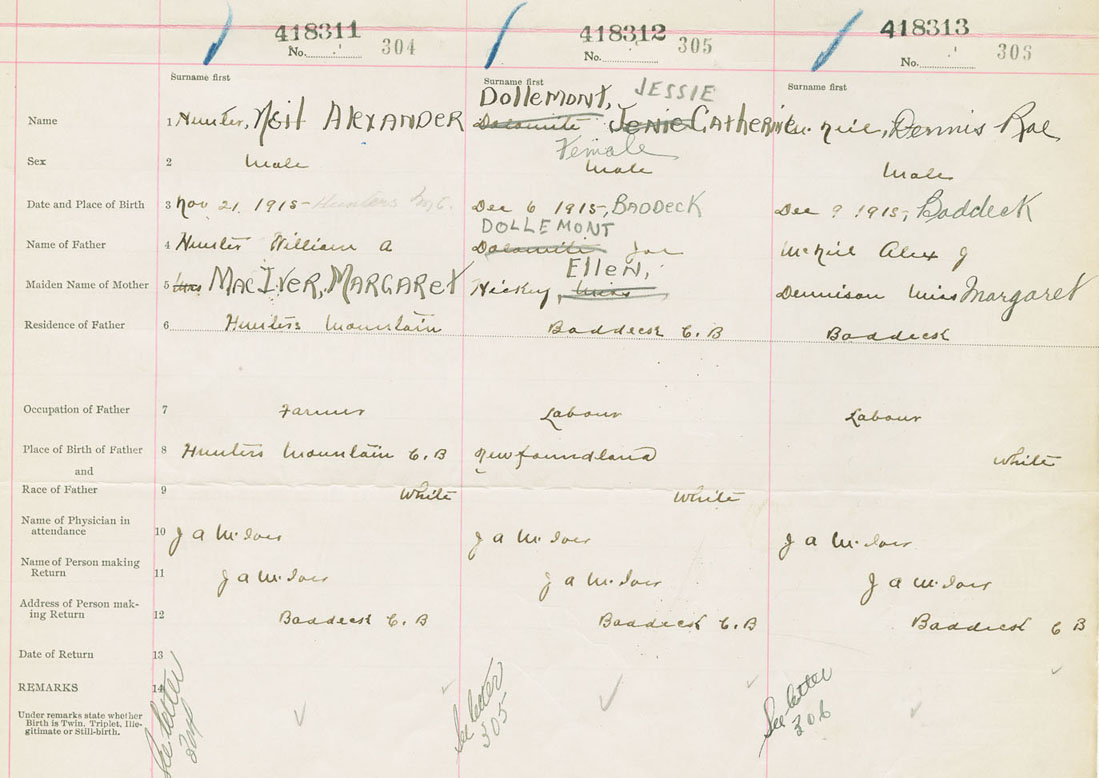 418311 418312 418313
No. 304 No. 305 No. 306
Surname first Surname first Surname first
JESSIE
Dollemont,
Name 1 Hunter, Neil ALEXANDER Dolomite Jenie Catherine McNeil, Dennis Roe
Female
Sex 2 Male Male Male
Date and Place of Birth 3 Nov 21 1915 - Hunters Mt. Dec 6 1915, BADDECK Dec 9 1915, Baddeck
DOLLEMONT
Name of Father 4 Hunter William A Dolomite Joe McNeil Alex J
Ellen,
Maiden Name of Mother 5 MacIver, MARGARET Hickey, Miss Dennison Miss Margaret
Residence of Father 6 Hunters Mountain Baddeck C. B Baddeck
Occupation of Father 7 Farmer Labour Labour
Place of Birth of Father 8 Hunters Mountain C. B Newfoundland
and
White
Race of Father 9 White White
Name of Physician in
attendance 10 J A J A J A
Name of Person making
Return 11 J A J A J A
Address of Person mak-
ing Return 12 Baddeck C. B Baddeck C. B Baddeck C B
Date of Return 13
REMARKS 14
Under remarks state whether
Birth is Twin, Triplet, Ille-
gitimate or Still-birth.
See letter
304
See letter
305
See letter
306